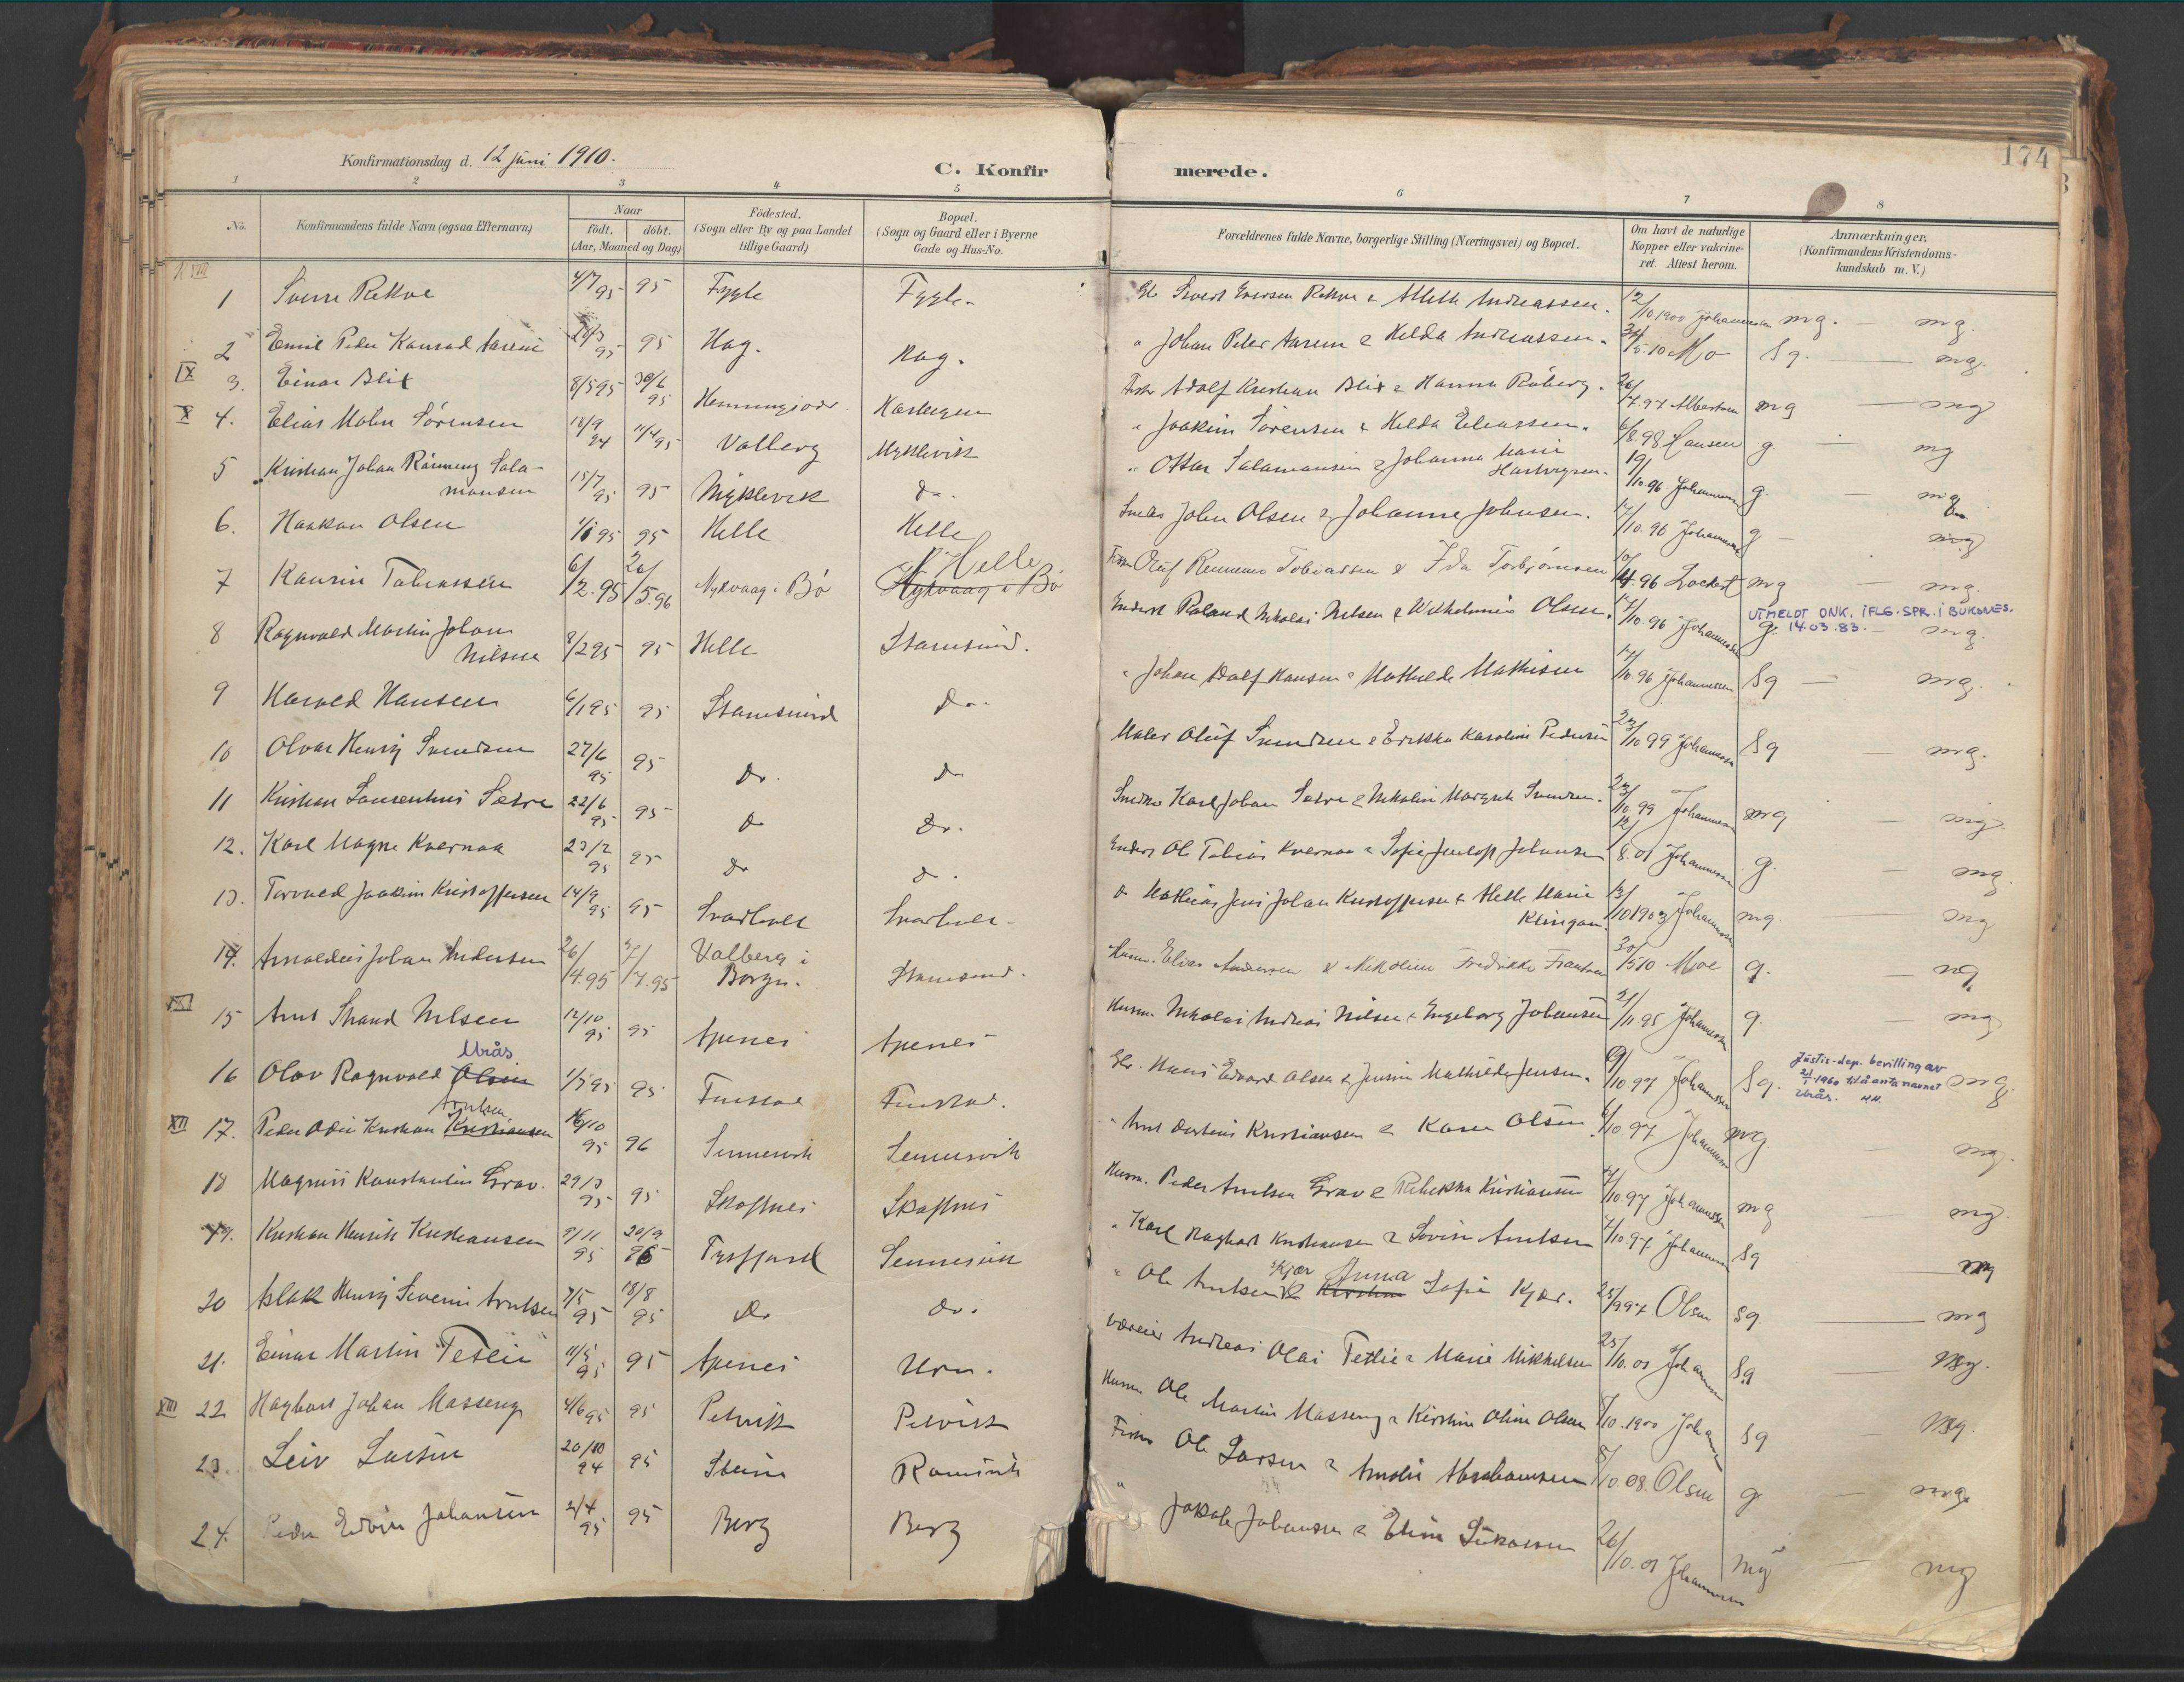 174
Konfirmationsdag d. 12 juni 1910.
C. Konfirmerede.
1 2 3 4 5 6 7 8
No.
Konfirmandens fulde Navn (ogsaa Efternavn)
Naar
födt. döbt.
(Aar, Maaned og Dag)
Födested.
(Sogn eller By og paa Landet
tillige Gaard)
Bopæl.
(Sogn og Gaard eller i Byerne
Gade og Hus-No.
Forældrenes fulde Navne, borgerlige Stilling (Næringsvei) og Bopæl.
Om havt de naturlige
Kopper eller vakcine-
ret. Attest herom.
Anmærkninger.
(Konfirmandens Kristendoms-
kundskab m. V.)
1 Sverre Rekve 4/7 95 95 Fygle Fygle. 12/10 1900 Johannessen mg. — mg.
2 Emil Peder Konrad 95 95 Hag. Hag. " Johan Peter & Hilda Andreassen. Mo Sg. — mg.
IX 3. Einar Blix 8/5 95 30/6 95 Adolf Kristian Blix & Hanna 26/7.97 Albertsen mg — mg
X 4. Elias Sørensen 18/9 94 11/4 95 Valberg Myklevik " Joakim Sørensen & Hilda Eliassen. 6/8.98 Hansen g. — mg
5 Kristian Johan Sala-
monsen 15/7 95 95 Myklevik Do. " Ottar Salamonsen & Johanna Marie
Hartvigsen. 19/10.96. Johannessen g. — mg
6. Haakon Olsen 95 95 Helle Helle John Olsen & Johanne Johnsen. 17/10.96 Johannessen g — mg
7 Tobiassen 6/2.95 26/5.96 Nykvaag i Bö Helle Nykvaag i Bö Tobiassen & Ida Torbjørnsen .96 Lockert mg — mg.
UTMELDT DNK. IFLG. SPR. I BUKSNES.
14.03.83.
8 Ragnvald Martin Johan
Nilsen 8/2 95 95 Helle Stamsund. Nikolai Nilsen & Olsen. 17/10.96 Johannessen g. — mg.
9 Harald Hansen 6/1 95 95 Stamsund Do. " Johan Adolf Hansen & Mathilde Mathisen 17/10.96 Johannessen Sg — mg.
10 Olvar Henrij Svendsen 27/6 95 95 Do. Do Maler Oluf Svendsen & Karoline Pedersen 23/10 99 Johannessen Sg — mg.
11 Kristian Laurentius Sætre 22/6 95 95 Do Do. Karl Johan Sætre & Svendsen. 23/10.99 Johannessen mg — mg.
12. Karl Magne Kvernaa 23/2 95 95 Do Do. Ole Tobias Kvernaa & Sofie Johansen 12/8.01 Johannessen g. — mg.
13. Torvald Joakim Kristoffersen 14/9 95 95 Svarholt Svarholt Mathias Jens Johan Kristoffersen & Marie
Klingan. 13/10 1903 Johannessen mg. — mg
14. Arnoldus Johan Andersen 26/4.95 7/7.95 Valberg i
Borge. Stamsund. Elias Andersen & Nikoline Fredrikke Frantsen 30/5 10 Moe g. — ng.
XI 15 Arnt Strand Nilsen 12/10 95 95 Apenes Apenes Nikolai Andreas Nilsen & Ingeborg Johansen 21/11 95 Johannessen g. — mg
16 Olav Ragnvald Olsen Urås 1/5 95 95 Finstad Finstad. Hans Edvard Olsen & Mathilde Jensen. 19/10 97 Johannessen Sg. mg.
Justis-dep. bevilling av
21/1 1960 til å anta navnet
Urås. H.H.
XII 17. Peder Odin Kristian Kristiansen Arntsen 16/10 95 96 Sennesvik Sennesvik " Arnt Kristiansen & Karen Olsen 6/10 97 Johannessen mg. mg.
18 Magnus Konstantin Grav. 29/3 95 95 Skafsnes Skafsnes Peder Arntsen Grav & Rebekka Kristiansen 7/10.97 Johannessen mg — mg.
19. Kristian Henrik Kristiansen 9/11 95 20/9 96 Tysfjord Sennesvik " Karl Kristiansen & Lovise Arntsen 7/10.97. Johannessen Sg — mg
20 Aslak Henrij Severin Arntsen 7/5 95 18/8 95 Do Do. " Ole Arntsen Kjær & Kirstine Anna Sofie Kjær. 25/9 97 Olsen Sg. — mg
21. Einar Martin Tetlie 11/5 95 95 Apenes Ure. Andreas Olai Tetlie & Marie Mikkelsen 25/10.01 Johannessen Sg — Mg.
XIII 22 Hagbart Johan Masseng 4/6 95 95 Petvik Petvik Ole Martin Masseng & Kirstine Oline Olsen 5/10.1900 Sg — Mg.
23. Leiv Larsen 20/10 94 95 Steine Ramsvik Ole Larsen & Amalie Abrahamsen 8/10 08. Olsen g — mg.
24. Peder Edvin Johansen 2/4 95 95 Berg Berg " Jakob Johansen & Eline 26/10.01 Johannessen mg — mg